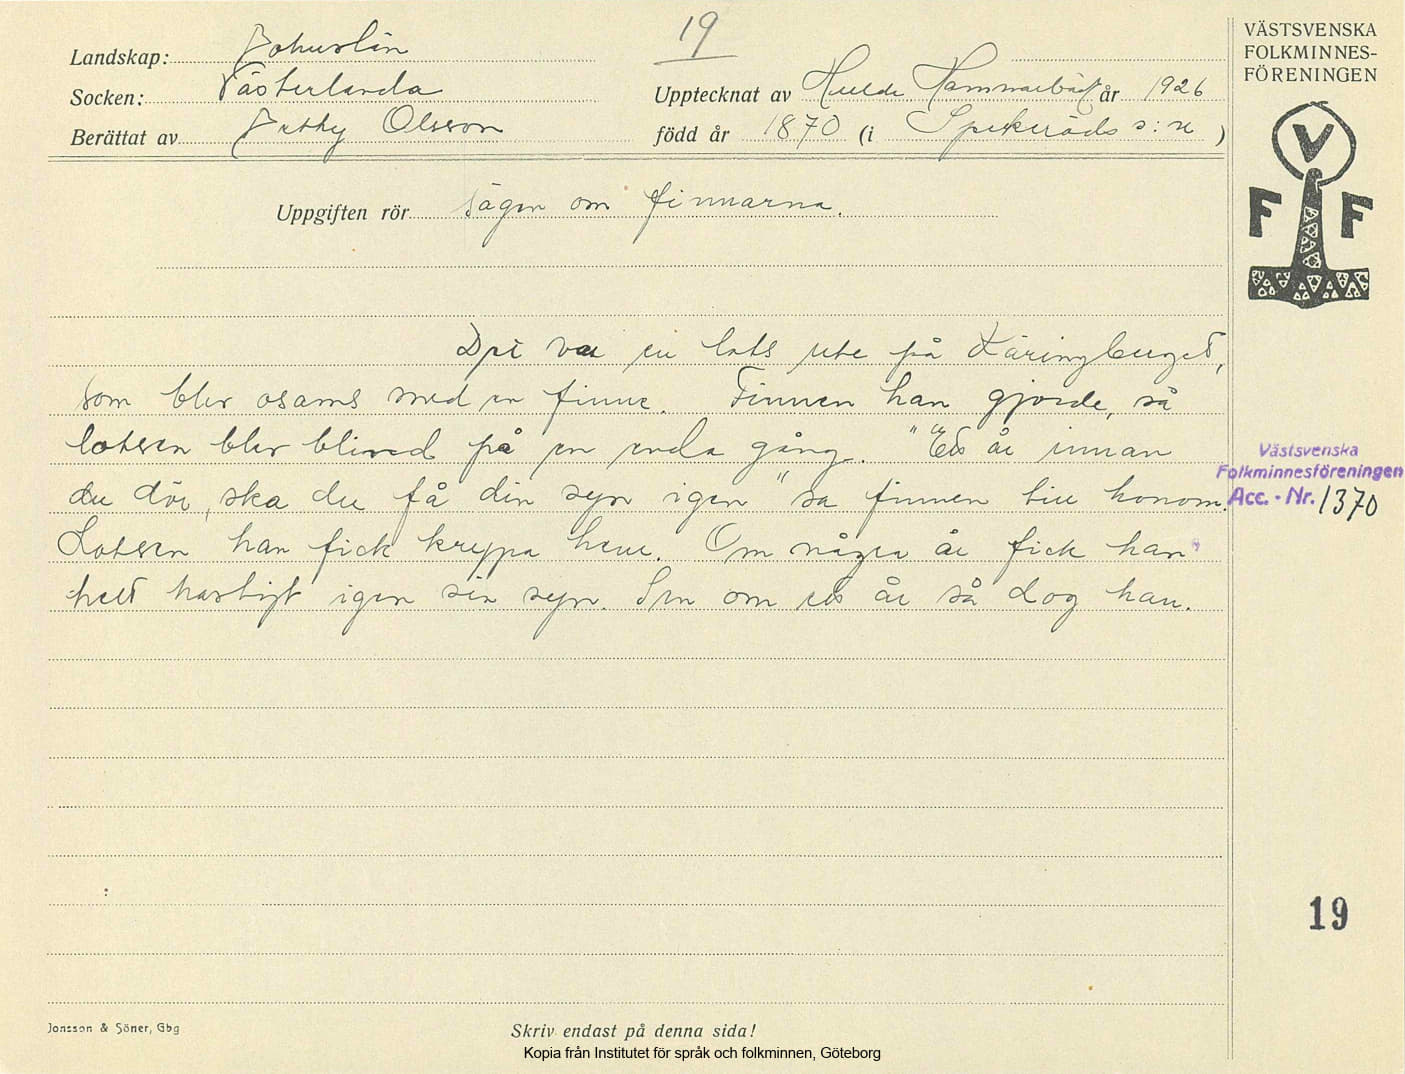 19
VÄSTSVENSKA
FOLKMINNES-
FÖRENINGEN
Landskap: Bohuslän
Socken: Västerlanda
Upptecknat av Hulda Hammarbäck år 1926
Berättat av Betty Olsson
född år 1870 (i Spekeröds s:n)
V
F F
Uppgiften rör sägen om finnarna.
Det var en lots ute på Käringberget,
som blev osams med en finne. Finnen han gjorde, så
lotsen blev blind på en enda gång. "Ett år innan
du dör, ska du få din syn igen" sa finnen till honom.
Lotsen han fick krypa hem. Om några år fick han
helt hastigt igen sin syn. Sen om ett år så dog han.
Västsvenska
Folkminnesföreningen
Acc. - Nr. 1370
19
Jonsson & Söner, Gbg
Skriv endast på denna sida!
Kopia från Institutet för språk och folkminnen, Göteborg